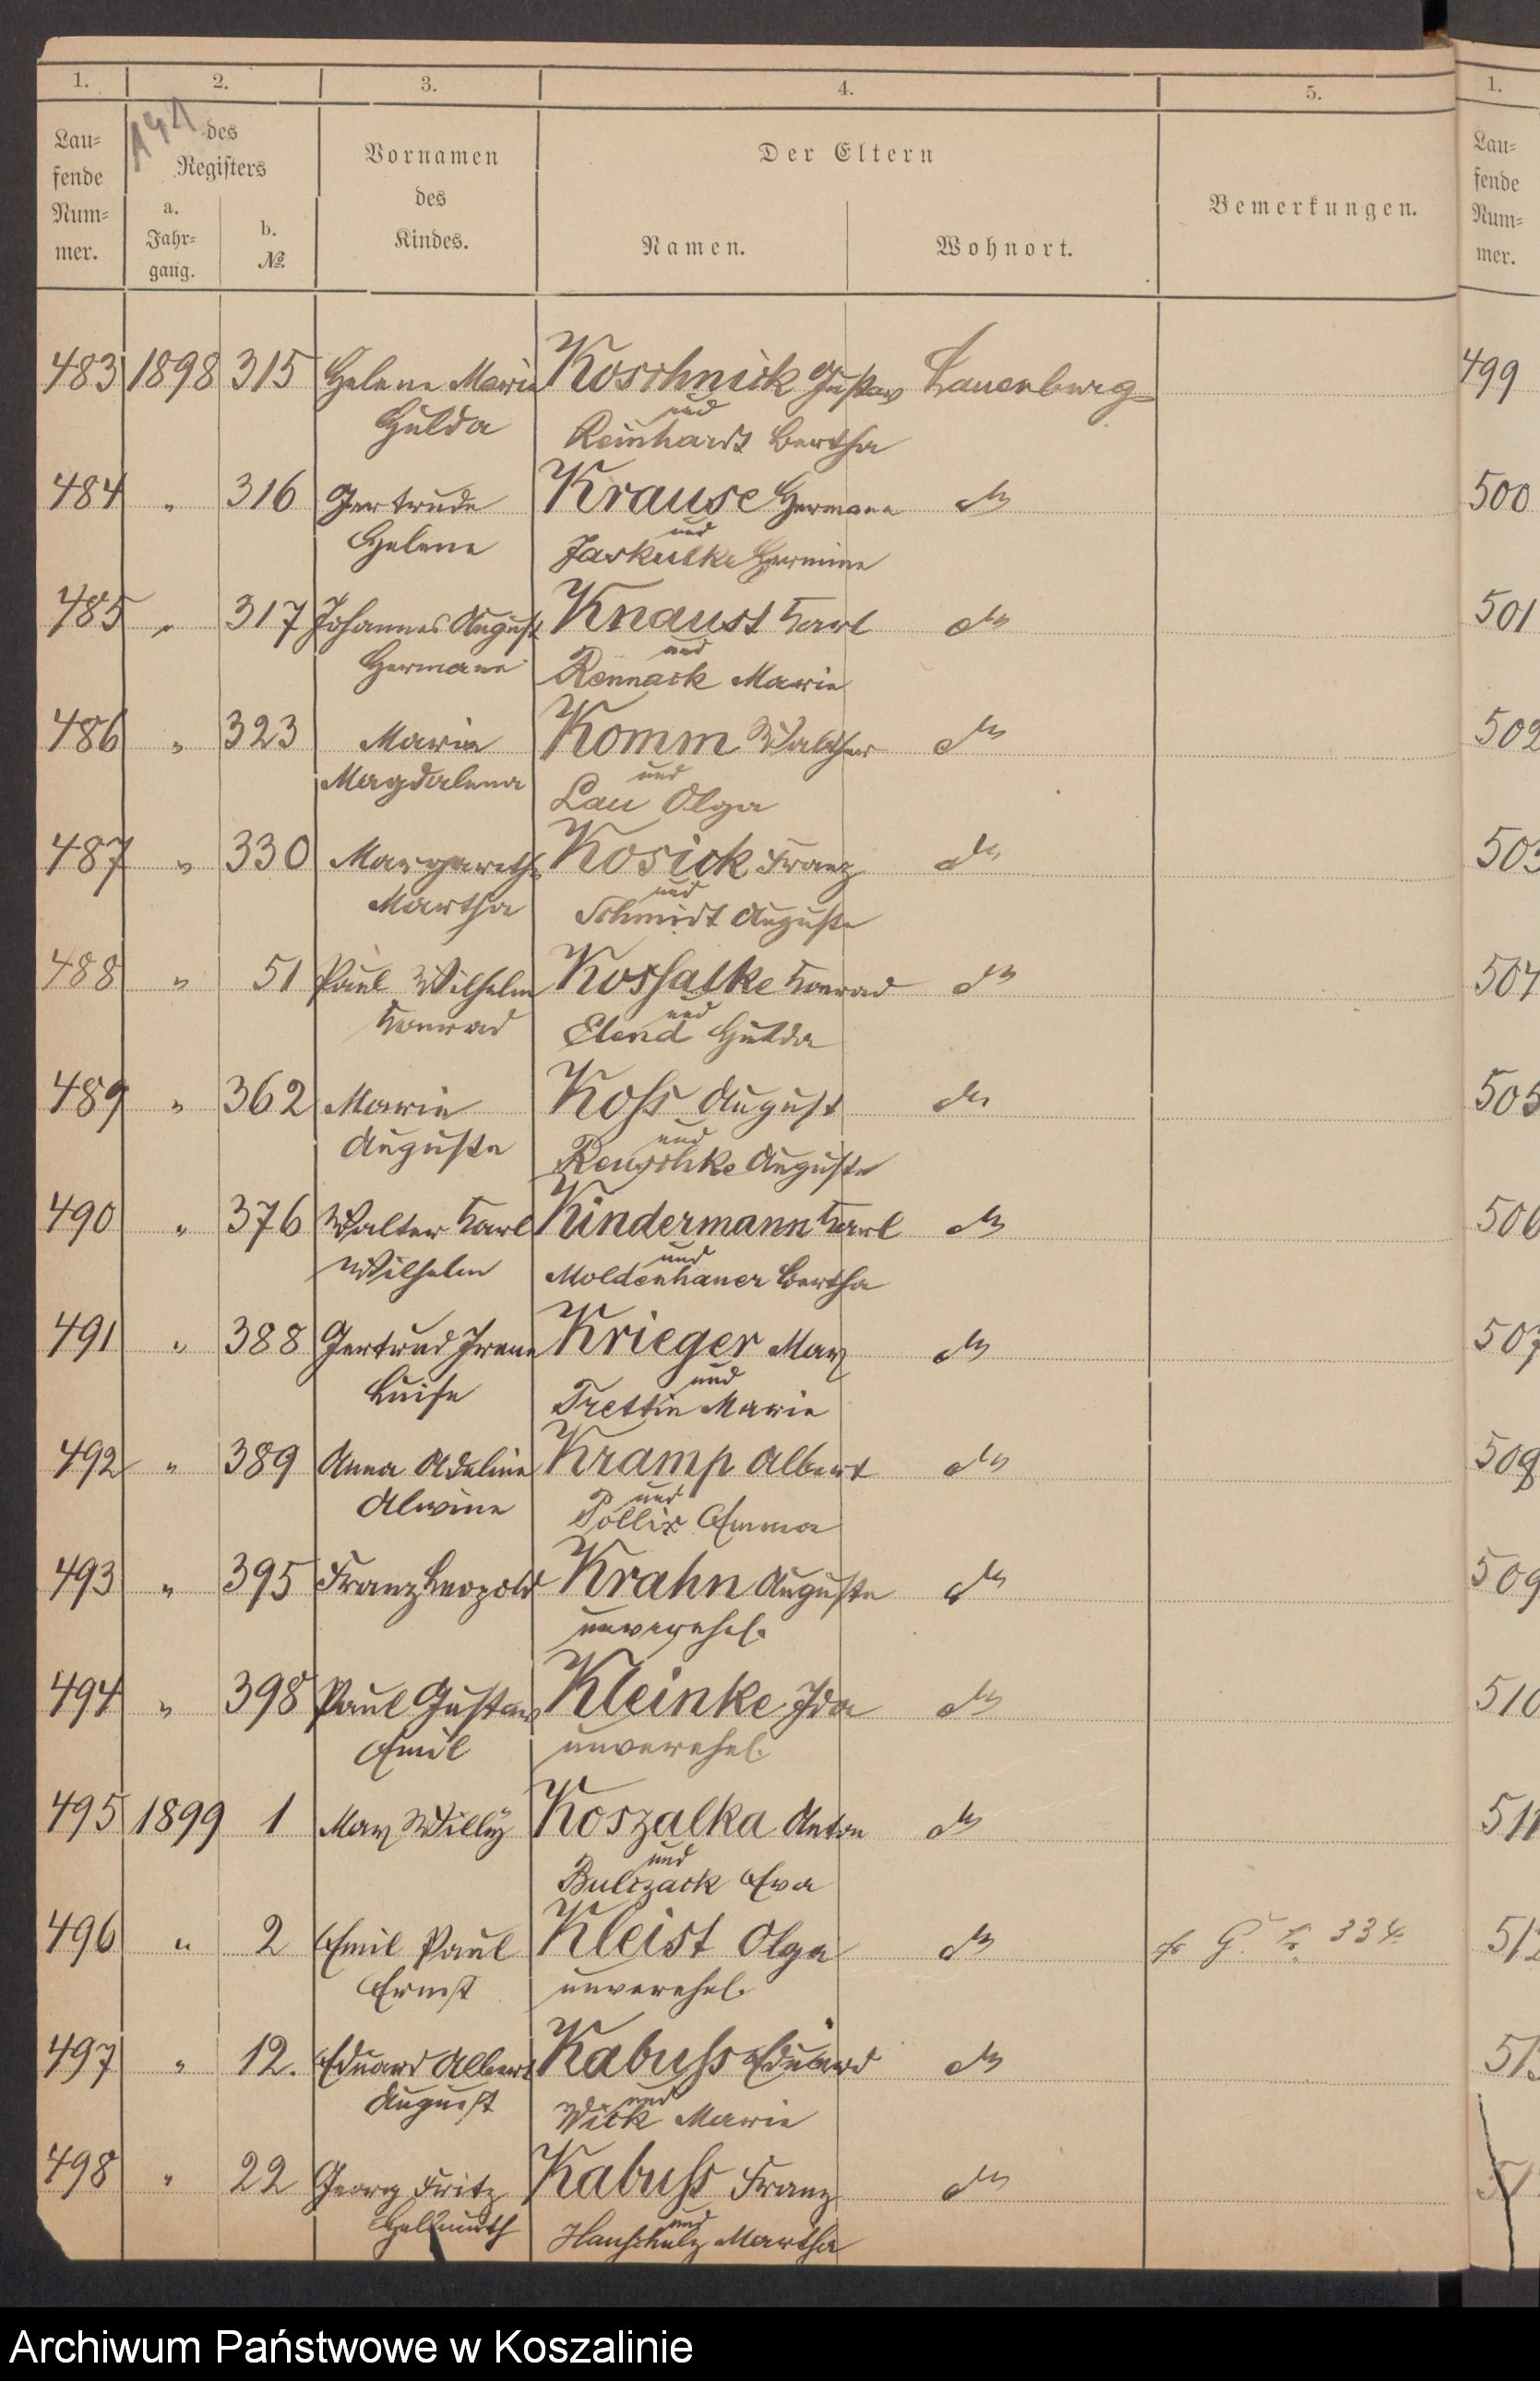 1. 2. 3. 4. 5. 1.
Lau⸗
fende
Num⸗
mer.
144
des
Registers
a.
Jahr⸗
gang.
b.
№.
Vornamen
des
Kindes.
Der Eltern
Namen. Wohnort.
Bemerkungen.
Lau⸗
fende
Num⸗
mer.
483 1898 315 Helene Marie Koschnick Gustav Lauenburg 499
und
Hulda Reinhardt Bertha
484 " 316 Gertrude Krause Hermann do 500
und
Helene Jaskulke Hermine
485 " 317 Johannes August Knaust Karl do 501
und
Hermann Rennack Marie
486 " 323 Marie Komm Walther do 502
und
Magdalena Lau Olga
487 " 330 Margarethe Kosick Franz do 503
und
Martha Schmidt Auguste
488 " 51 Paul Wilhelm Kossalke Konrad do 504
und
Konrad Elend Hulda
489 " 362 Marie Koss August do 505
und
Auguste Renschke Auguste
490 " 376 Walter Karl Kindermann Karl do 506
und
Wilhelm Moldenhauer Bertha
491 " 388 Gertrud Irene Krieger Max do 507
und
Luise Trettin Marie
492 " 389 Anna Adeline Kramp Albert do 508
und
Alwine Pollix Emma
493 " 395 Franz Leopold Krahn Auguste do 509
unverehel.
494 " 398 Paul Gustav Kleinke Ida do 510
Emil unverehel.
495 1899 1 Max Willy Koszalka Anton do 511
und
Bulczack Eva
496 " 2 Emil Paul Kleist Olga do G. K. 334. 512
Ernst unverehel.
497 " 12. Eduard Albert Kabuss Eduard do 513
und
August Wick Marie
498 " 22 Georg Fritz Kabuss Franz do
und
Hellmuth Hanschulz Martha
Archiwum Państwowe w Koszalinie